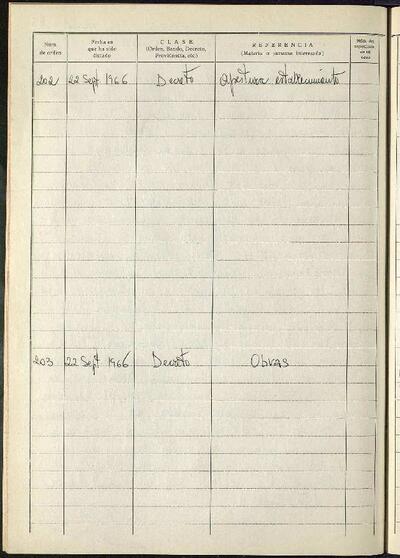 Núm. de orden
Fecha en que ha sido dictado
CLASE
(Orden, Bando, Decreto, Providencia, etc.)
REFERENCIA
(Materia o persona interesada)
202 22 Sept 1966 Decreto Apertura establecimiento
203 22 Sept 1966 Decreto Obras